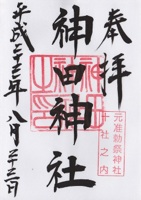 奉拝
元准勅祭神社
十社之内
神田神社
平成二十三年八月二十三日